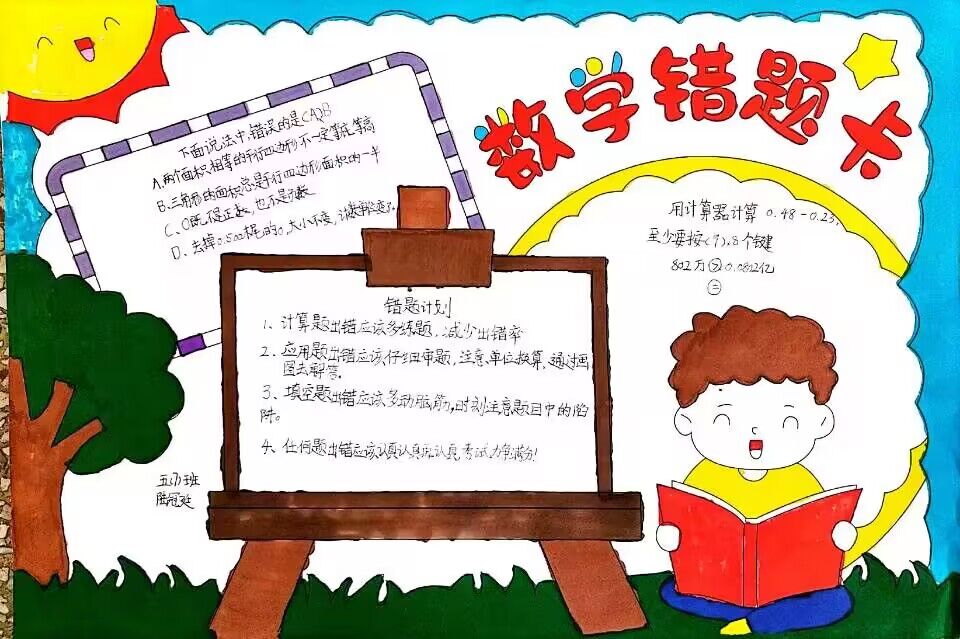 数学错题卡
下面说法中,错误的是(A)B
A.两个面积相等的平行四边形不一定等底等高
B.三角形的面积总是平行四边形面积的一半
C、0既不是正数,也不是负数
D、去掉0.500末尾的0,大小不变,
用计算器计算 0.48-0.23,
至少要按(9).8个键
802万 0.0802亿
=
错题计划
1、计算题出错应该多练题,减少出错率
2、应用题出错应该仔细审题,注意单位换算,通过画
图去解答。
3、填空题出错应该多动脑筋,时刻注意题目中的陷
阱。
4、任何题出错应该认真认真再认真,考试力争满分!
五(7)班